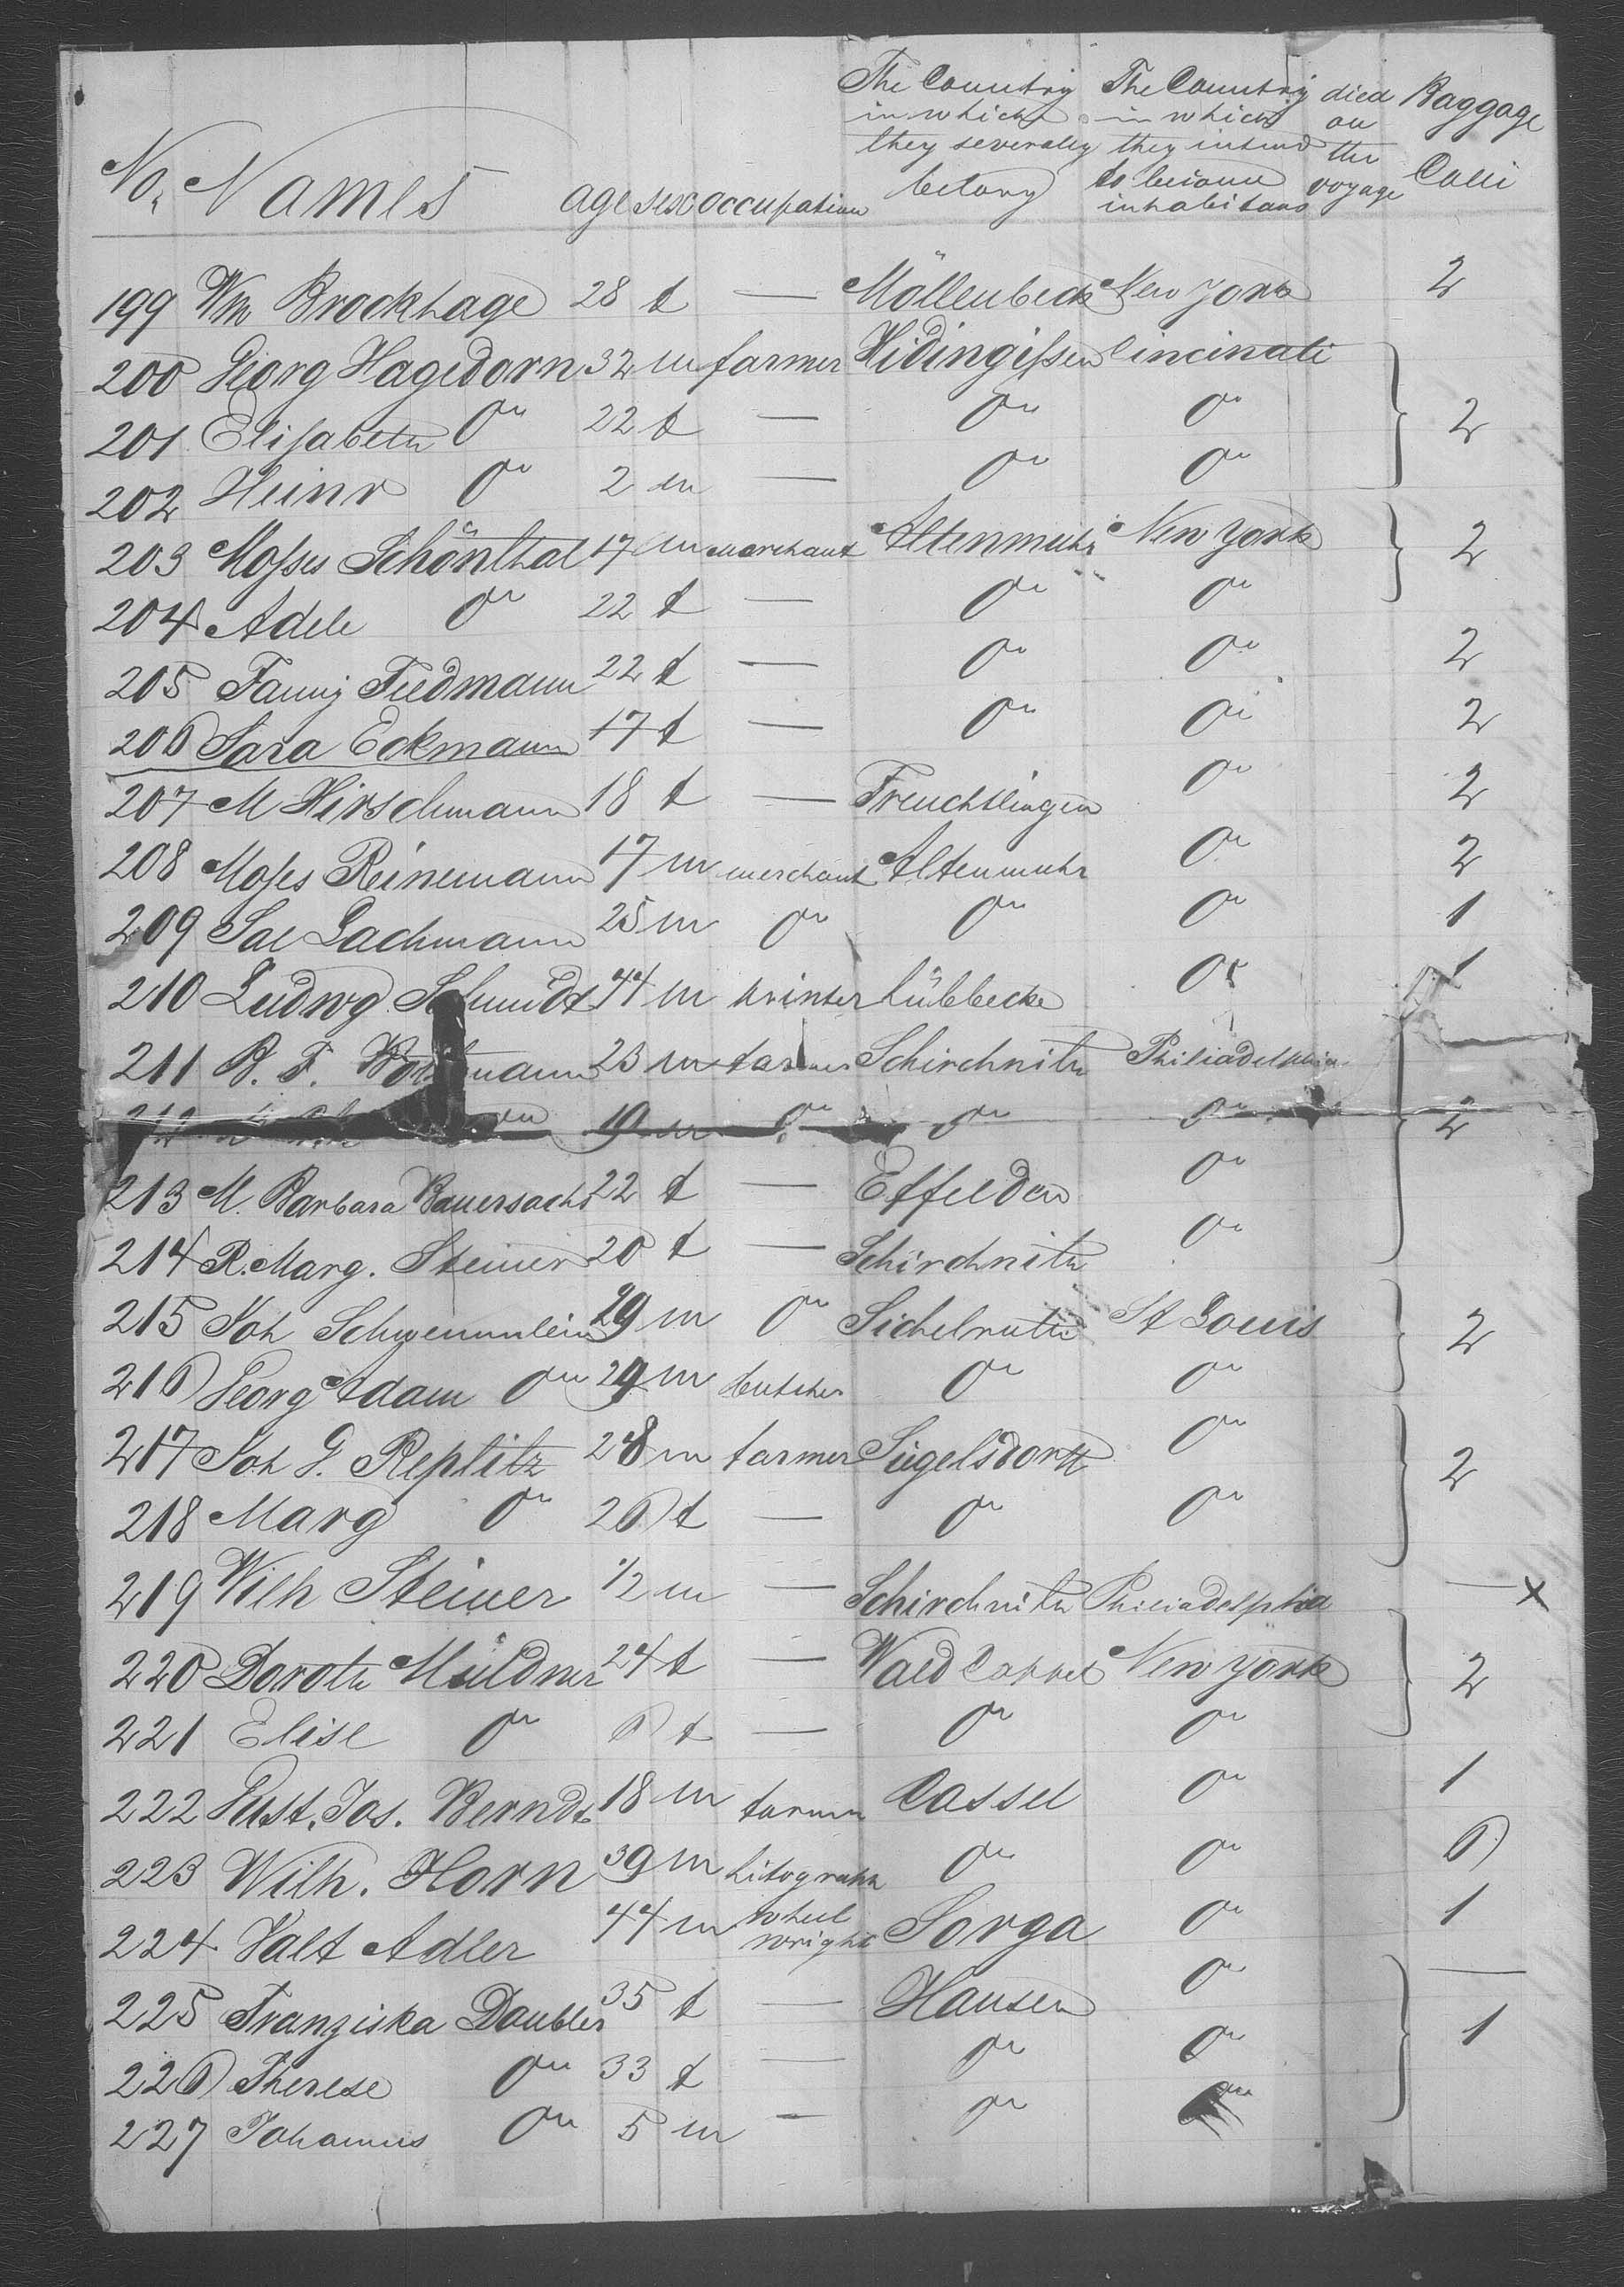 No. Names age sex occupation The Country in which they severally belong The Country in which they intend to become inhabitans died on the voyage Baggage Colli
199 Wm Brockhage 28 f — Möllenbeck New York 2
200 Georg Hagedorn 32 m farmer Hidingissen Cincinati
201 Elisabeth do 22 f — do do 2
202 Heinr do 2 m — do do
203 Mosses Schönthal 17 m marchant Altenmuhr New York 2
204 Adele do 22 f — do do
205 Fanny Feedmann 22 f — do do 2
206 Sara Eckmann 17 f — do do 2
207 M Hirschmann 18 f — Treuchtlingen do 2
208 Moses Reinemann 17 m merchant Altenmuhr do 2
209 Sal Lachmann 25 m do do do 1
210 Ludwg Schmidt 44 m printer Lübbecke do 1
211 B. F. 23 m farmer Schirchnitz Philiadelphia
212 19 m do do do 2
213 M. Barbara Bauersachs 22 f — Effelder do
214 R. Marg. Steiner 20 f — Schirchnitz do
215 Joh Schwemmlein 29 m do Sichelruth St Louis 2
216 Georg Adam do 29 m butcher do do
217 Joh G. Replitz 28 m farmer Sügelsdorff do 2
218 Marg do 26 f — do do
219 Wilh Steiner 1/2 m — Schirchnitz Philiadelphia — x
220 Doroth Muldner 24 f — Wald Cappel New York 2
221 Elise do 6 f — do do
222 Gust. Jos. Berndt 18 m farmer Cassel do 1
223 Wilh. Horn 39 m Litograph do do 6
224 Valt Adler 44 m wheel wright Sorga do 1
225 Franziska Doubler 35 f — Hausen do —
226 Therese do 33 f — do do 1
227 Johannes do 5 m — do do